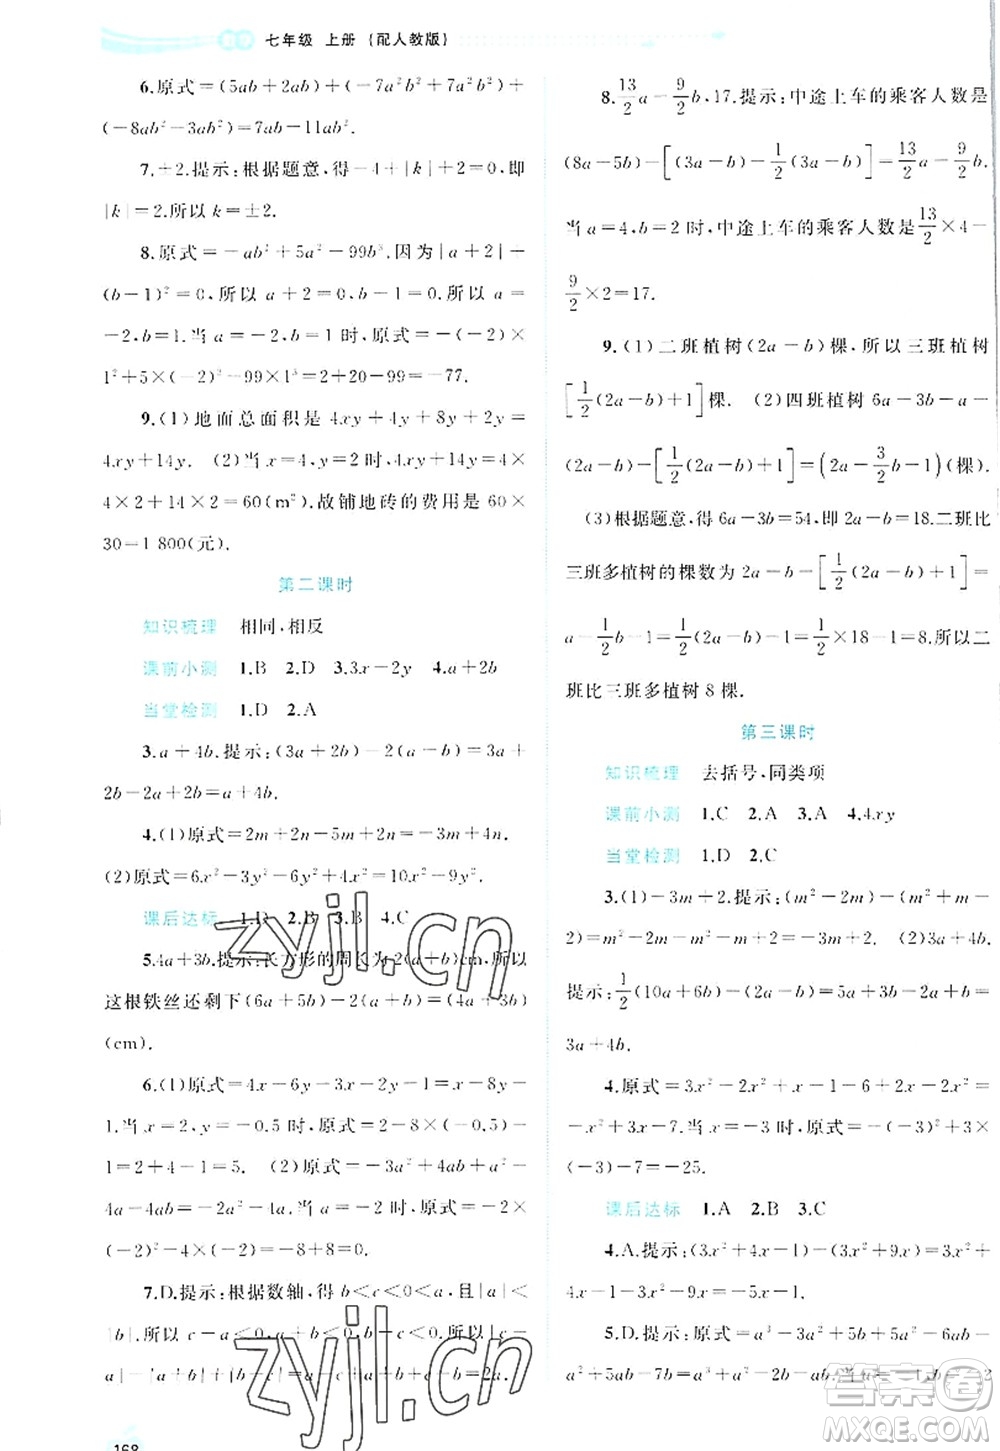 七年级 上册 (配人教版)
6.原式=(5ab+2ab)+(-7a²b²+7a²b²)+
(-8ab²-3ab²)=7ab-11ab².
7.±2.提示:根据题意,得-4+|k|+2=0,即
|k|=2.所以 k=±2.
8.原式=-ab²+5a²-99b³.因为|a+2|+
(b-1)²=0,所以 a+2=0,b-1=0.所以 a=
-2,b=1.当 a=-2,b=1 时,原式=-(-2)×
1²+5×(-2)²-99×1³=2+20-99=-77.
9.(1)地面总面积是 4xy+4y+8y+2y=
4xy+14y. (2)当 x=4,y=2 时,4xy+14y=4×
4×2+14×2=60(m²),故铺地砖的费用是 60×
30=1 800(元).
第二课时
知识梳理 相同,相反
课前小测 1.B 2.D 3.3x-2y 4.a+2b
当堂检测 1.D 2.A
3.a+4b.提示:(3a+2b)-2(a-b)=3a+
2b-2a+2b=a+4b.
4.(1)原式=2m+2n+2m-2n=4m.
(2)原式=6x²-3y²-6y²+4x²=10x²-9y².
课后达标 1.D 2.B 3.B 4.C
5.4a+3b.提示:长方形的周长为 2(a+b)cm,所以
这根铁丝还剩下(6a+5b)-2(a+b)=(4a+3b)
(cm).
6.(1)原式=4x-6y-3x-2y-1=x-8y-
1.当 x=2,y=-0.5 时,原式=2-8×(-0.5)-
1=2+4-1=5. (2)原式=-3a²+4ab+a²-
4a-4ab=-2a²-4a.当 a=-2 时,原式=-2×
(-2)²-4×(-2)=-8+8=0.
7.D.提示:根据数轴,得 b<c<0<a,且|a|<
|b|.所以 c-a<0,
168
8.13/2a-9/2b,17.提示:中途上车的乘客人数是
(8a-5b)-[(3a-b)-1/2(3a-b)]=13/2a-9/2b.
当 a=4,b=2 时,中途上车的乘客人数是13/2×4-
9/2×2=17.
9.(1)二班植树(2a-b)棵,所以三班植树
[1/2(2a-b)+1]棵. (2)四班植树 6a-3b-a-
(2a-b)-[1/2(2a-b)+1]=(2a-3/2b-1)(棵).
(3)根据题意,得 6a-3b=54,即 2a-b=18.二班比
三班多植树的棵数为 2a-b-[1/2(2a-b)+1]=
a-1/2b-1=1/2(2a-b)-1=1/2×18-1=8.所以二
班比三班多植树 8 棵.
第三课时
知识梳理 去括号,同类项
课前小测 1.C 2.A 3.A 4.4xy
当堂检测 1.D 2.C
3.(1)-3m+2.提示:(m²-2m)-(m²+m-
2)=m²-2m-m²-m+2=-3m+2. (2)3a+4b.
提示:1/2(10a+6b)-(2a-b)=5a+3b-2a+b=
3a+4b.
4.原式=3x²-2x²+x-x²-5=x-
课后达标 1.A 2.B 3.C
4.A.提示:(3x²+4x-1)-(3x²+9x)=3x²+
4x-1-3x²-9x=-5x-1.
5.D.提示:原式=a³-3a²+5b+5a²-
答案圈
MXQE.COM
zyjl.cn
zyjl.cn